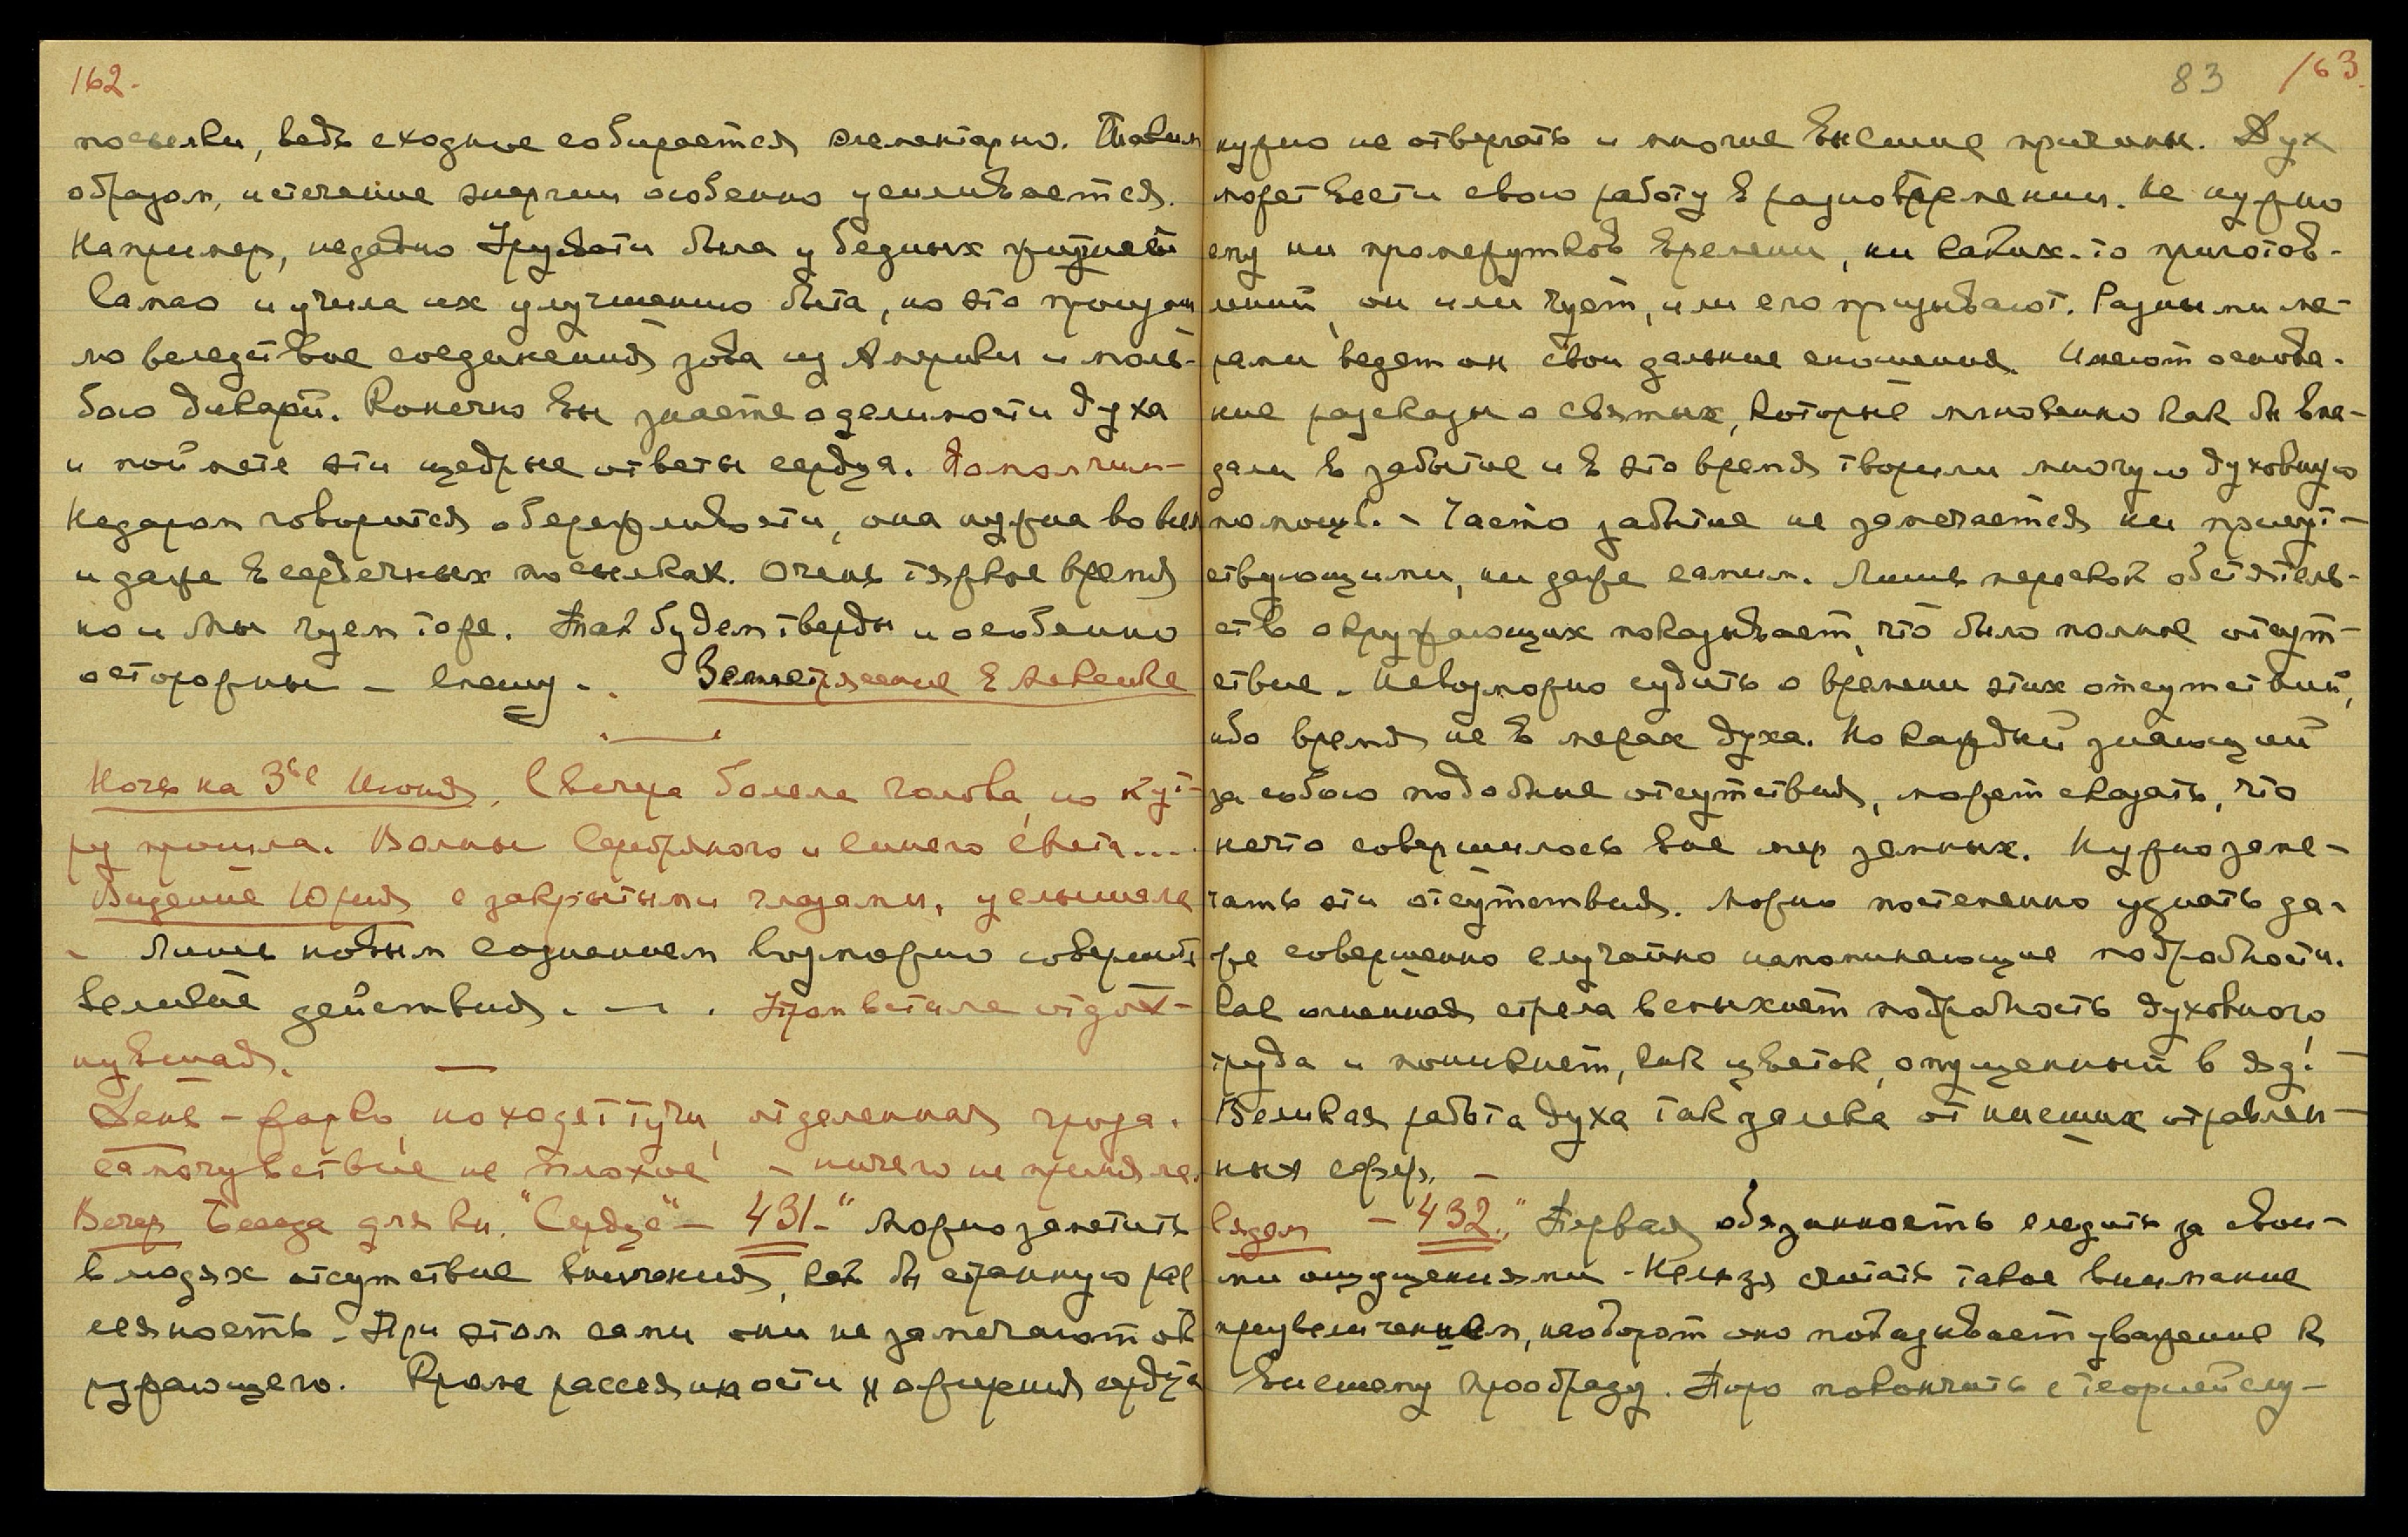 162.
посылки, ведь сходное собирается элементарно. Таким
образом, истечение энергии особенно усиливается.
Например, недавно Урувати была у бедных жителей
Самао и учила их улучшению быта, но это произош
ло вследствие соединения зова из Америки и моль-
бою дикарей. Конечно Вы знаете о делимости духа
и поймете эти щедрые ответы сердца.
Недаром говорится о бережливости, она нужна во всем
и даже в сердечных посылках. Очень тяжкое время
но и Мы чуем тоже. Так будем тверды и особенно
осторожны – спешу. . Землетрясение в Мексике
Ночь на 3ье Июня, С вечера болела голова, но к ут-
ру прошла. Волны Серебряного и Синего света....
Видение Юрия с закрытыми глазами, услышала
– Лишь новым сознанием возможно совершить
великие действия. — .
нувшая.
День – жарко, находят тучи, отдаленная гроза.
самочувствие не плохое – ничего не приняла.
Вечер Беседа для кн. "Сердце" – 431 – " Можно заметить
в людях отсутствие внимания, как бы странную рас
сеяность – При этом сами они не замечают ок
ружающего. Кроме рассеянности и ожирения сердца
83 163.
нужно не отвергать и многие Высшие причины. Дух
может вести свою работу в разновременьи. Не нужно
ему ни промежутков времени, ни каких-то приготов-
лений, он или чует, или его призывают. Разными ме-
рами ведет он свои дальние сношения. Имеют основа-
ние рассказы о святых, которые мгновенно как бы впа-
дали в забытие и в это время творили многую духовную
помощь. – Часто забытие не замечается ни присут-
ствующими, ни даже самим. Лишь перескок обстоятель-
ств окружающих показывает, что было полное отсут-
ствие. Невозможно судить о времени этих отсутствий,
ибо время не в мерах духа. Но каждый знающий
за собою подобные отсутствия, может сказать, что
нечто совершилось вне мер земных. Нужно заме-
чать эти отсутствия. Можно постепенно узнать да-
же совершенно случайно напоминающие подробности.
Как огненная стрела вспыхнет подробность духовного
труда и поникнет, как цветок, опущенный в яд! –
Великая работа духа так далека от низших отравлен-
ных сфер. –
– 432. " Первая обязанность следить за свои-
ми ощущениями – Нельзя считать такое внимание
преувеличением, наоборот оно показывает уважение к
Высшему Прообразу. Пора покончить с теорией слу-